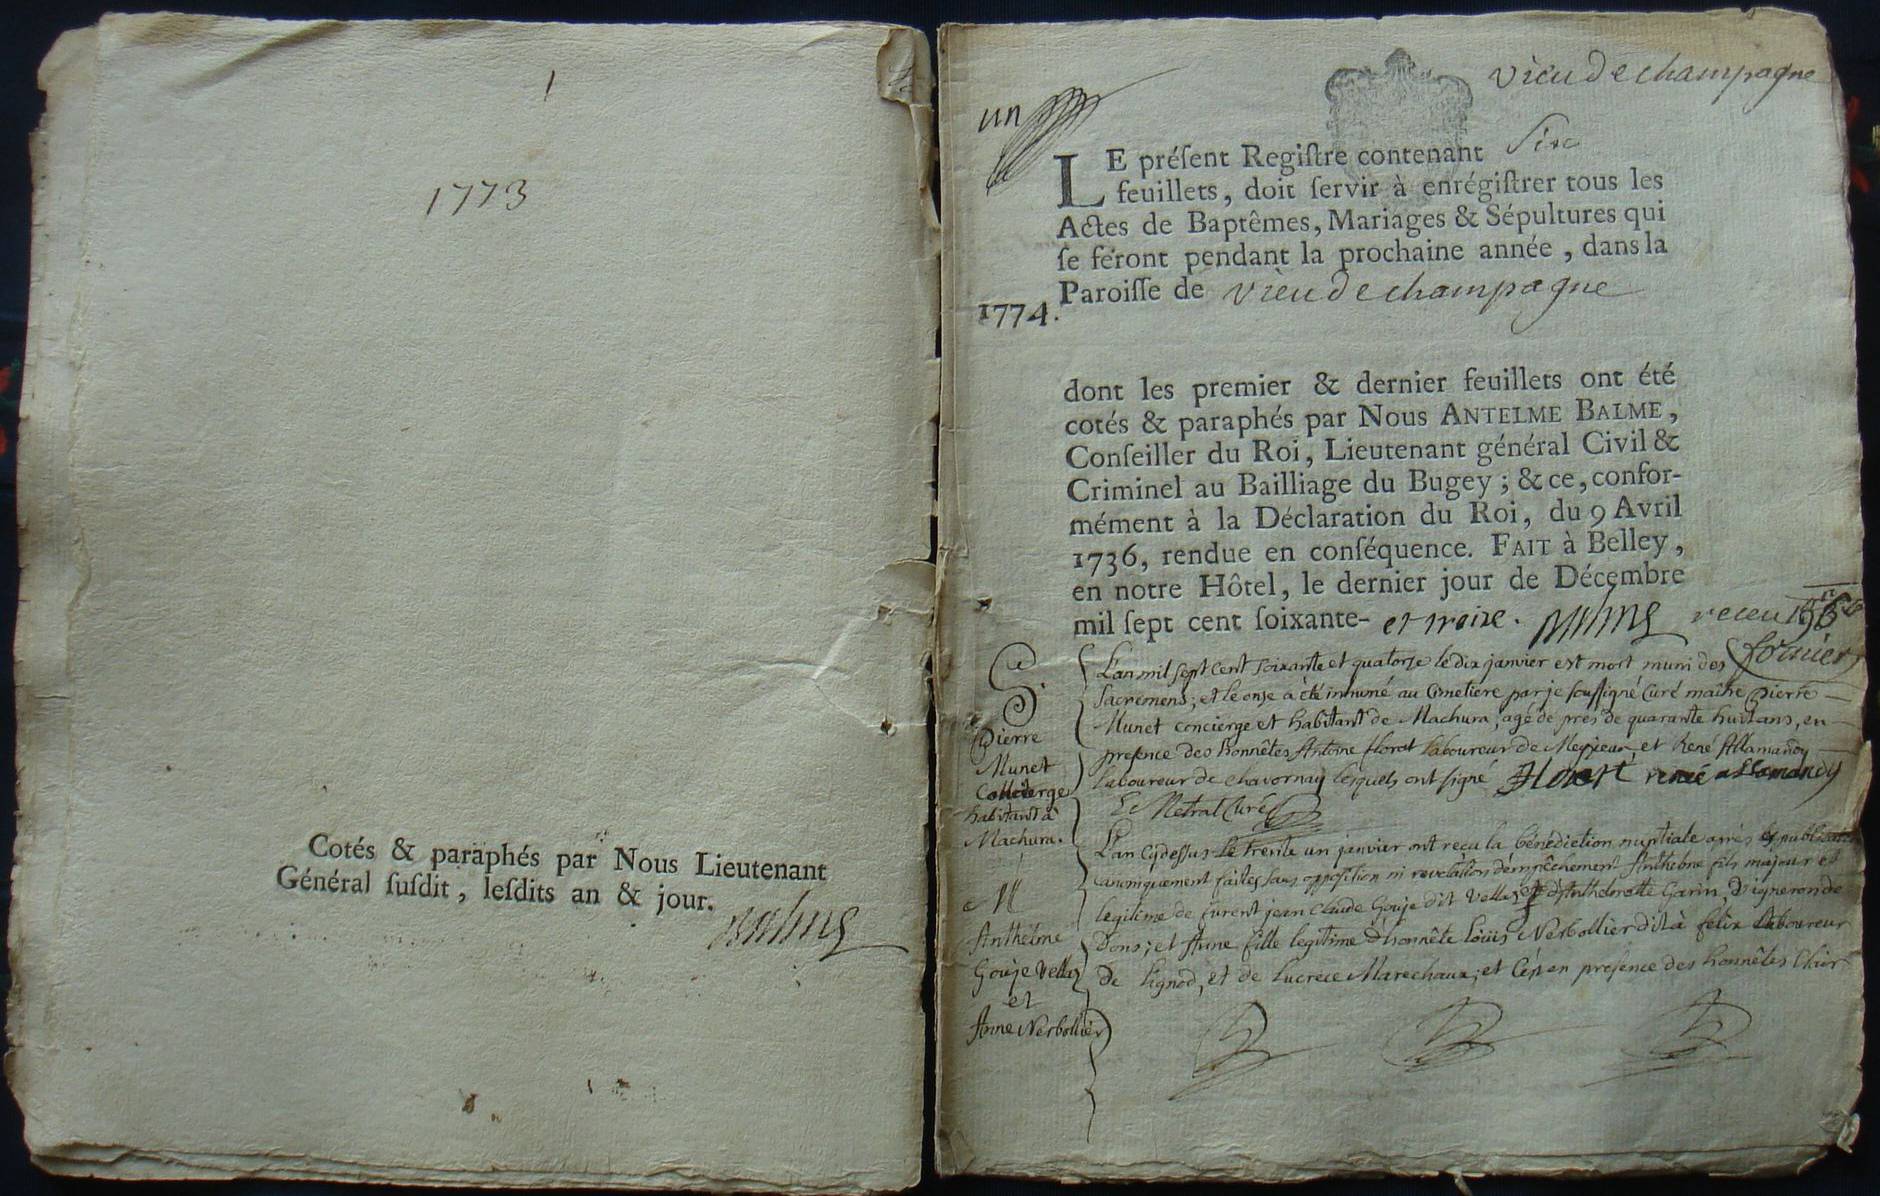 1
1773
Cotés & paraphés par Nous Lieutenant
Général ſuſdit, leſdits an & jour.
Balme
vieu de champagne
un
LE préſent Regiſtre contenant Six
feuillets, doit ſervir à enrégiſtrer tous les
Actes de Baptêmes, Mariages & Sépultures qui
ſe feront pendant la prochaine année, dans la
Paroiſſe de vieu de champagne
1774.
dont les premier & dernier feuillets ont été
cotés & paraphés par Nous ANTELME BALME,
Conſeiller du Roi, Lieutenant général Civil &
Criminel au Bailliage du Bugey; & ce, confor-
mément à la Déclaration du Roi, du 9 Avril
1736, rendue en conſéquence. FAIT à Belley,
en notre Hôtel, le dernier jour de Décembre
mil ſept cent ſoixante- et treize. Balme receu
S.
Pierre
Munet
Concierge
habitant à
Machura.
L'an mil sept cent soixante et quatorze le dix janvier est mort muni des
sacremens; et le onze a été inhumé au cimetiere par je soussigné Curé maître Pierre
Munet concierge et habitant de Machura, agé de près de quarante huit ans, en
presence des honnêtes Antoine floret laboureur de et René Allamandy
laboureur de chavornay lesquels ont signé floret rené allamandy
Metral Curé
M
Anthelme
Gouje Vellaz
et
Anne Nerbollier
L'an Cydessus le trente un janvier ont reçu la bénédiction nuptiale après publications
canoniquement faites sans opposition ni revelation d'empêchement Anthelme fils majeur et
legitime de furent jean Claude Gouje dit Vellaz et d'Anthelmette Garin, Vigneron de
Dons; et Anne fille legitime d'honnête Loüis Nerbollier dit à felix laboureur
De Lignod, et de Lucrece Marechaux; et C'est en presence des honnêtes Clair